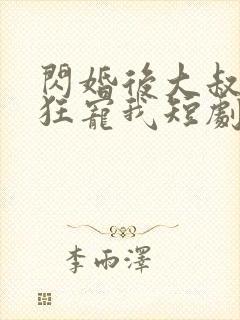 閃婚後大叔
狂寵我短劇
李雨澤